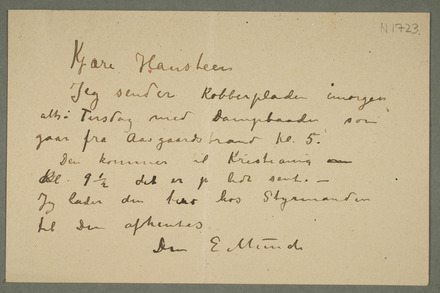 N 1723
Kjære Hansteen
Jeg sender Kobberpladen imorgen
altså Tirsdag med Dampbaaden som
gaar fra Aasgaardstrand kl. 5.
Den kommer til Kristiania
Kl. 9½ det er jo lidt sent. –
Jeg lader den hos Styrmanden
til Den afhentes
Din E Munch